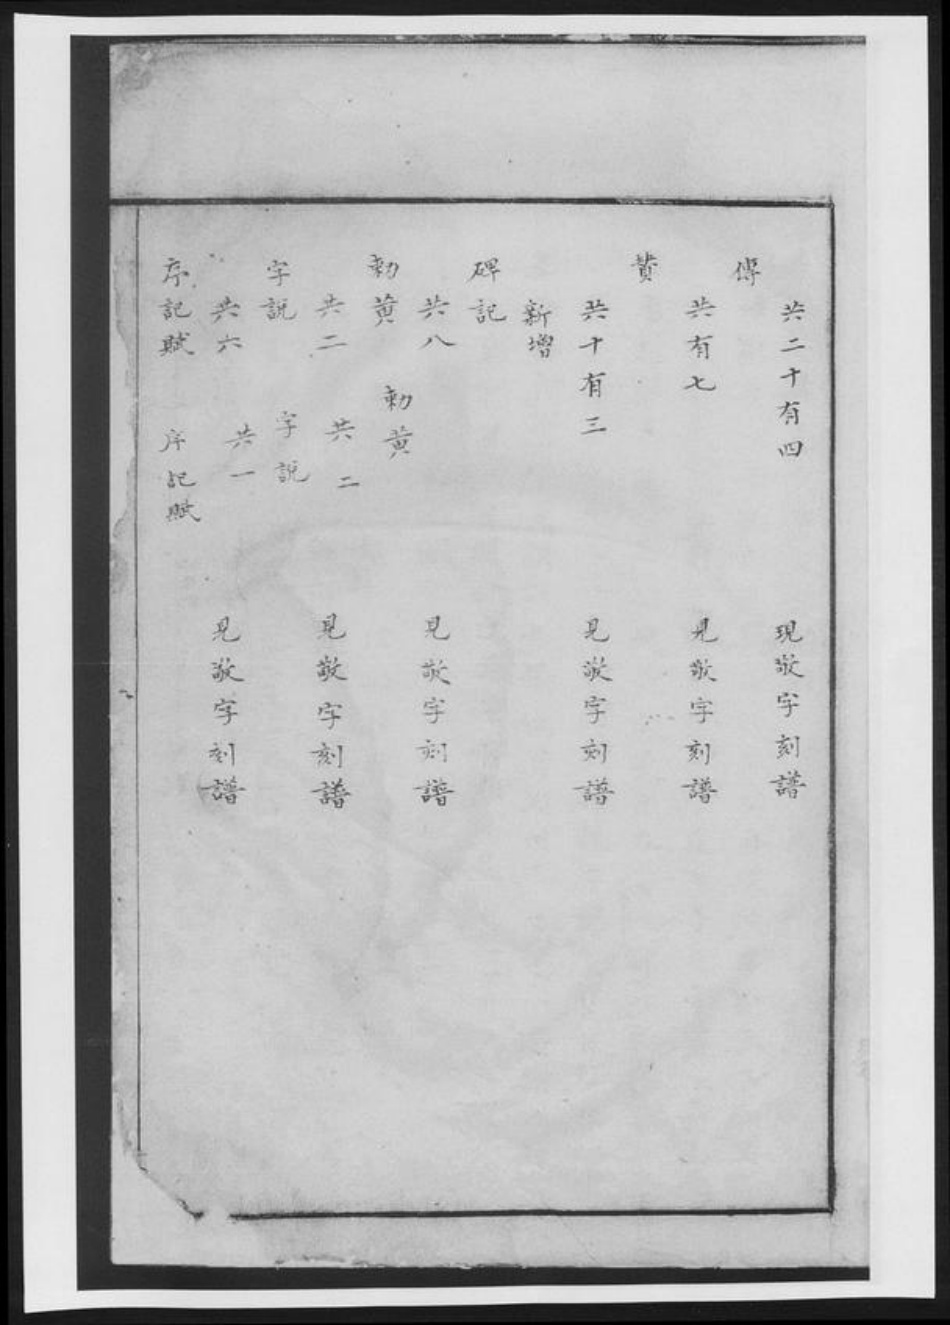 共二十有四　現敬字刻譜
傳
共有七　見敬字刻譜
賛
共十有三　見敬字刻譜
新增
碑記
共八　見敬字刻譜
勅黄　勅黄
共二　共二　見敬字刻譜
字説　字説
共六　共一　見敬字刻譜
序記賦　序記賦